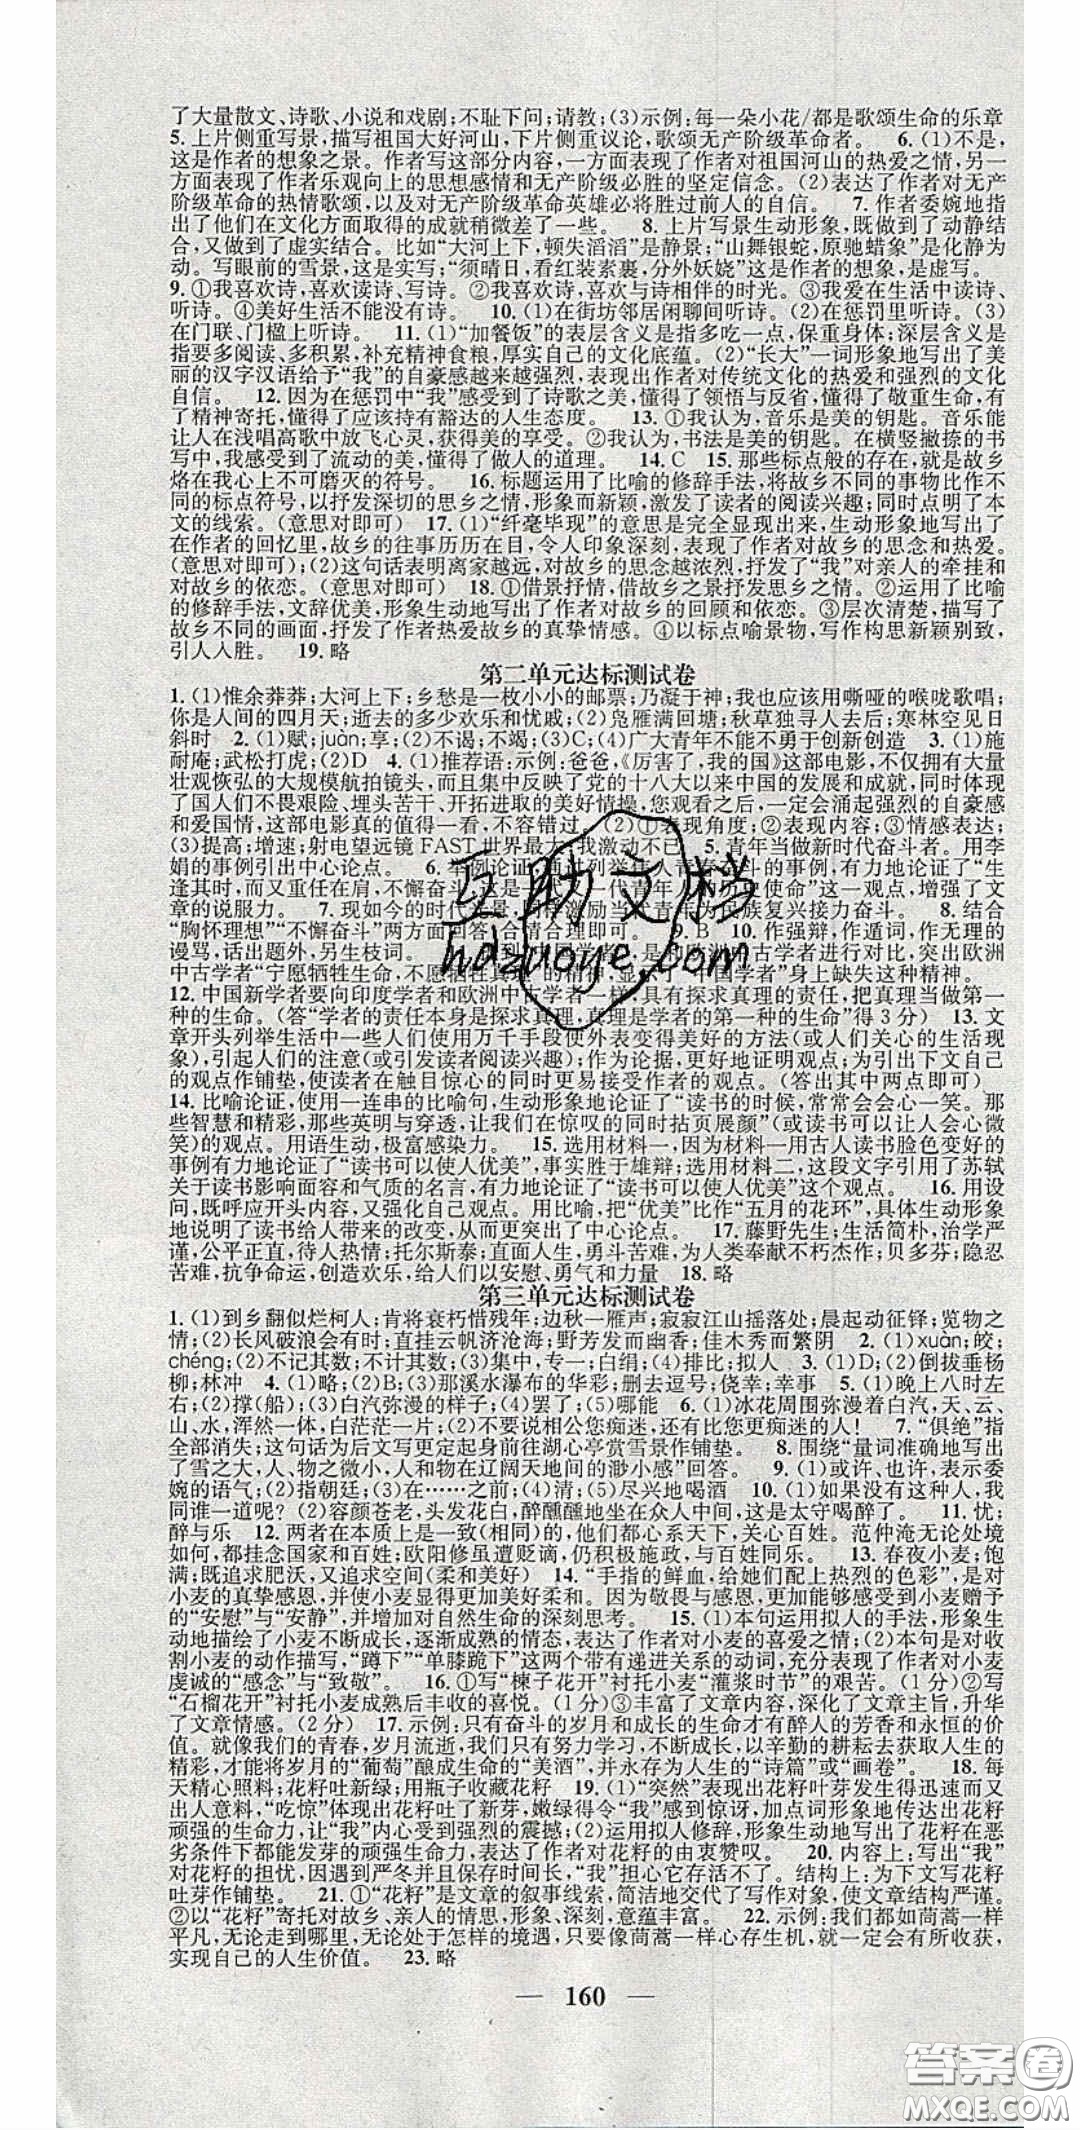 了大量散文、诗歌、小说和戏剧;不耻下问;请教;(3)示例:每一朵小花/都是歌颂生命的乐章
5. 上片侧重写景,描写祖国大好河山,下片侧重议论,歌颂无产阶级革命者。 6. (1)不是,
这是作者的想象之景。作者写这部分内容,一方面表现了作者对祖国河山的热爱之情,另一
方面表现了作者乐观向上的思想感情和无产阶级必胜的坚定信念。(2)表达了作者对无产
阶级革命的热情歌颂,以及对无产阶级革命英雄必将胜过前人的自信。 7. 作者委婉地指
出了他们在文化方面取得的成就稍微差了一些。 8. 上片写景生动形象,既做到了动静结
合,又做到了虚实结合。比如“大河上下,顿失滔滔”是静景;“山舞银蛇,原驰蜡象”是化静为
动。写眼前的雪景,这是实写;“须晴日,看红装素裹,分外妖娆”这是作者的想象,是虚写。
9. ①我喜欢诗,喜欢读诗、写诗。②我喜欢诗,喜欢与诗相伴的时光。③我爱在生活中读诗、
听诗。④美好生活不能没有诗。 10. (1)在街坊邻居闲聊间听诗。(2)在惩罚里听诗。(3)
在门联、门楹上听诗。 11. (1)“加餐饭”的表层含义是指多吃一点,保重身体;深层含义是
指要多阅读、多积累,补充精神食粮,厚实自己的文化底蕴。(2)“长大”一词形象地写出了美
丽的汉字汉语给予“我”的自豪感越来越强烈,表现出作者对传统文化的热爱和强烈的文化
自信。 12. 因为在惩罚中“我”感受到了诗歌之美,懂得了领悟与反省,懂得了敬重生命,有
了精神寄托,懂得了应该持有豁达的人生态度。 13. ①我认为,音乐是美的钥匙。音乐能
让人在浅唱高歌中放飞心灵,获得美的享受。②我认为,书法是美的钥匙。在横竖撇捺的书
写中,我感受到了流动的美,懂得了做人的道理。 14. C 15. 那些标点般的存在,就是故乡
烙在我心上不可磨灭的符号。 16. 标题运用了比喻的修辞手法,将故乡不同的事物比作不
同的标点符号,以抒发深切的思乡之情,形象而新颖,激发了读者的阅读兴趣;同时点明了本
文的线索。(意思对即可) 17. (1)“纤毫毕现”的意思是完全显现出来,生动形象地写出了
在作者的回忆里,故乡的往事历历在目,令人印象深刻,表现了作者对故乡的思念和热爱。
(意思对即可);(2)这句话表明离家越远,对故乡的思念越浓烈,抒发了“我”对亲人的牵挂和
对故乡的依恋。(意思对即可) 18. ①借景抒情,借故乡之景抒发思乡之情。②运用了比喻
的修辞手法,文辞优美,形象生动地写出了作者对故乡的回顾和依恋。③层次清楚,描写了
故乡不同的画面,抒发了作者热爱故乡的真挚情感。④以标点喻景物,写作构思新颖别致,
引人入胜。 19. 略
第二单元达标测试卷
1. (1)惟余莽莽;大河上下;乡愁是一枚小小的邮票;乃凝于神;我也应该用嘶哑的喉咙歌唱;
你是人间的四月天;逝去的多少欢乐和忧戚;(2)凫雁满回塘;秋草独寻人去后;寒林空见日
斜时 2. (1)赋;juàn;享;(2)不谒;不竭;(3)C;(4)广大青年不能不勇于创新创造 3. (1)施
耐庵;武松打虎;(2)D 4. (1)推荐语:示例:爸爸,《厉害了,我的国》这部电影,不仅拥有大量
壮观恢弘的大规模航拍镜头,而且集中反映了党的十八大以来中国的发展和成就,同时体现
了国人们不畏艰险、埋头苦干、开拓进取的美好情操,您观看之后,一定会涌起强烈的自豪感
和爱国情,这部电影真的值得一看,不容错过。(2)①表现角度;②表现内容;③表现方式
(3)提高;增速;射电望远镜 FAST 世界最大;我激动不已 5. 青年当做新时代奋斗者。用李
娟的事例引出中心论点。 6. 举例论证,通过列举使人青春奋斗的事例,有力地论证了“生
逢其时而又重任在肩,不懈奋斗,这是一代又一代青年人的历史使命”这一观点,增强了文
章的说服力。 7. 现如今的时代光景,同样激励当代青年为民族复兴接力奋斗。 8. 结合
“胸怀理想”“不懈奋斗”两方面回答,合情合理即可。 9. B 10. 作强辩,作遁词,作无理的
谩骂,话出题外,另生枝词。
中古学者“宁愿牺牲生命,不愿牺牲真理”的精神,显示了“中国学者”身上缺失这种精神。
12. 中国新学者要向印度学者和欧洲中古学者一样,具有探求真理的责任,把真理当做第一
种的生命。(答“学者的责任本身是探求真理,真理是学者的第一种的生命”得 3 分) 13. 文
章开头列举生活中一些人们使用万千手段使外表变得美好的方法(或人们关心的生活现
象),引起人们的注意(或引发读者阅读兴趣);作为论据,更好地证明观点;为引出下文自己
的观点作铺垫,使读者在触目惊心的同时更易接受作者的观点。(答出其中两点即可)
14. 比喻论证,使用一连串的比喻句,生动形象地论证了“读书的时候,常常会会心一笑。那
些智慧和精彩,那些英明与穿透,让我们在惊叹的同时拈页展颜”(或读书可以让人会心微
笑)的观点。用语生动,极富感染力。 15. 选用材料一,因为材料一用古人读书脸色变好的
事例有力地论证了“读书可以使人优美”,事实胜于雄辩;选用材料二,这段文字引用了苏轼
关于读书影响面容和气质的名言,有力地论证了“读书可以使人优美”这个观点。 16. 用设
问,既呼应开头内容,又强化自己观点。用比喻,把“优美”比作“五月的花环”,具体生动形象
地说明了读书给人带来的改变,从而更突出了中心论点。 17. 藤野先生;生活简朴,治学严
谨,公平正直,待人热情;托尔斯泰;直面人生,勇斗苦难,为人类奉献不朽杰作;贝多芬;隐忍
苦难,抗争命运,创造欢乐,给人们以安慰、勇气和力量 18. 略
第三单元达标测试卷
1. (1)到乡翻似烂柯人;肯将衰朽惜残年;边秋一雁声;寂寂江山摇落处;晨起动征铎;览物之
情;(2)长风破浪会有时;直挂云帆济沧海;野芳发而幽香;佳木秀而繁阴 2. (1)xuàn;皎;
chéng;(2)不记其数;不计其数;(3)集中,专一;白绢;(4)排比;拟人 3. (1)D;(2)倒拔垂杨
柳;林冲 4. (1)略;(2)B;(3)那溪水瀑布的华彩;删去逗号;侥幸;幸事 5. (1)晚上八时左
右;(2)撑(船);(3)白汽弥漫的样子;(4)罢了;(5)哪能 6. (1)冰花周围弥漫着白汽,天、云、
山、水,浑然一体,白茫茫一片;(2)不要说相公您痴迷,还有比您更痴迷的人! 7. “俱绝”指
全部消失;这句话为后文写更定起身前往湖心亭赏雪景作铺垫。 8. 围绕“量词准确地写出
了雪之大,人、物之微小,人和物在辽阔天地间的渺小感”回答。 9. (1)或许、也许,表示委
婉的语气;(2)指朝廷;(3)在……之前;(4)清;(5)尽兴地喝酒 10. (1)如果没有这种人,我
同谁一道呢?(2)容颜苍老,头发花白,醉醺醺地坐在众人中间,这是太守喝醉了。 11. 忧;
醉与乐 12. 两者在本质上是一致(相同)的,他们都心系天下,关心百姓。范仲淹无论处境
如何,都挂念国家和百姓;欧阳修虽遭贬谪,仍积极施政,与百姓同乐。 13. 春夜小麦;饱
满;既追求肥沃,又追求空间(柔和美好) 14. “手指的鲜血,给她们配上热烈的色彩”,是对
小麦的真挚感恩,并让小麦显得更加美好柔和。因为敬畏与感恩,更加能够感受到小麦赠予
的“安慰”与“安静”,并增加对自然生命的深刻思考。 15. (1)本句运用拟人的手法,形象生
动地描绘了小麦不断成长,逐渐成熟的情态,表达了作者对小麦的喜爱之情;(2)本句是对收
割小麦的动作描写,“蹲下”“单膝跪下”这两个带有递进关系的动词,充分表现了作者对小麦
虔诚的“感念”与“致敬”。 16. ①写“楝子花开”衬托小麦“灌浆时节”的艰苦。(1 分)②写
“石榴花开”衬托小麦成熟后丰收的喜悦。(1 分)③丰富了文章内容,深化了文章主旨,升华
了文章情感。(2 分) 17. 示例:只有奋斗的岁月和成长的生命才有醉人的芳香和永恒的价
值。就像我们的青春,岁月流逝,我们只有努力学习,不断成长,以辛勤的耕耘去获取人生的
精彩,才能将岁月的“葡萄”酿成生命的“美酒”,并永存为人生的“诗篇”或“画卷”。 18. 每
天精心照料;花籽吐新绿;用瓶子收藏花籽 19. (1)“突然”表现出花籽叶芽发生得迅速而又
出人意料,“吃惊”体现出花籽吐了新芽,嫩绿得令“我”感到惊讶,加点词形象地传达出花籽
顽强的生命力,让“我”内心受到强烈的震撼;(2)运用拟人修辞,形象生动地写出了花籽在恶
劣条件下都能发芽的顽强生命力,表达了作者对花籽的由衷赞叹。 20. 内容上:写出“我”
对花籽的担忧,因遇到严冬并且保存时间长,“我”担心它存活不了。结构上:为下文写花籽
吐芽作铺垫。 21. ①“花籽”是文章的叙事线索,简洁地交代了写作对象,使文章结构严谨。
②以“花籽”寄托对故乡、亲人的情思,形象、深刻,意蕴丰富。 22. 示例:我们都如茼蒿一样
平凡,无论走到哪里,无论处于怎样的境遇,只要像茼蒿一样心存生机,就一定会有所收获,
实现自己的人生价值。 23. 略
互助文档
hdzuoye.com
— 160 —
答案圈
MXQE.COM